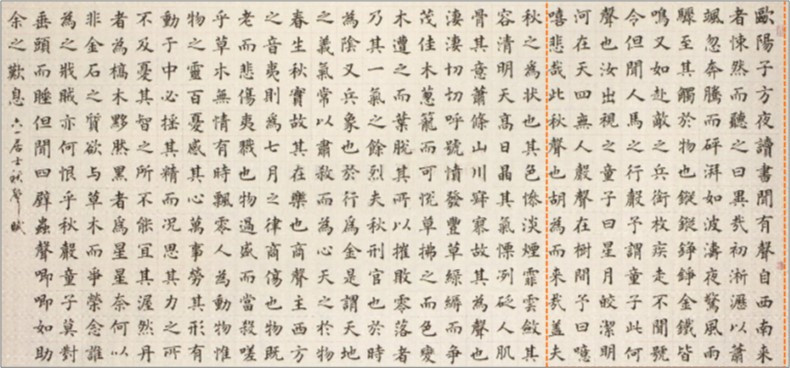 歐陽子方夜讀書聞有聲自西南來
者悚然而聽之曰異哉初淅瀝以蕭
颯忽奔騰而砰湃如波濤夜驚風雨
驟至其觸於物也鏦鏦錚錚金鐵皆
鳴又如赴敵之兵銜枚疾走不聞號
令但聞人馬之行聲予謂童子此何
聲也汝出視之童子曰星月皎潔明
河在天四無人聲聲在樹間予曰噫
嘻悲哉此秋聲也胡為而來哉蓋夫
秋之為狀也其色慘淡煙霏雲斂其
容清明天高日晶其氣慄冽砭人肌
骨其意蕭條山川寂寥故其為聲也
淒淒切切呼號憤發豐草綠縟而爭
茂佳木蔥蘢而可悅草拂之而色變
木遭之而葉脫其所以摧敗零落者
乃其一氣之餘烈夫秋刑官也於時
為陰又兵象也於行為金是謂天地
之義氣常以肅殺而為心天之於物
春生秋實故其在樂也商聲主西方
之音夷則為七月之律商傷也物既
老而悲傷夷戮也物過盛而當殺嗟
乎草木無情有時飄零人為動物惟
物之靈百憂感其心萬事勞其形有
動于中必搖其精而況思其力之所
不及憂其智之所不能宜其渥然丹
者為槁木黟然黑者為星星奈何以
非金石之質欲與草木而爭榮念誰
為之戕賊亦何恨乎秋聲童子莫對
垂頭而睡但聞四壁蟲聲唧唧如助
余之歎息 六一居士秋聲賦